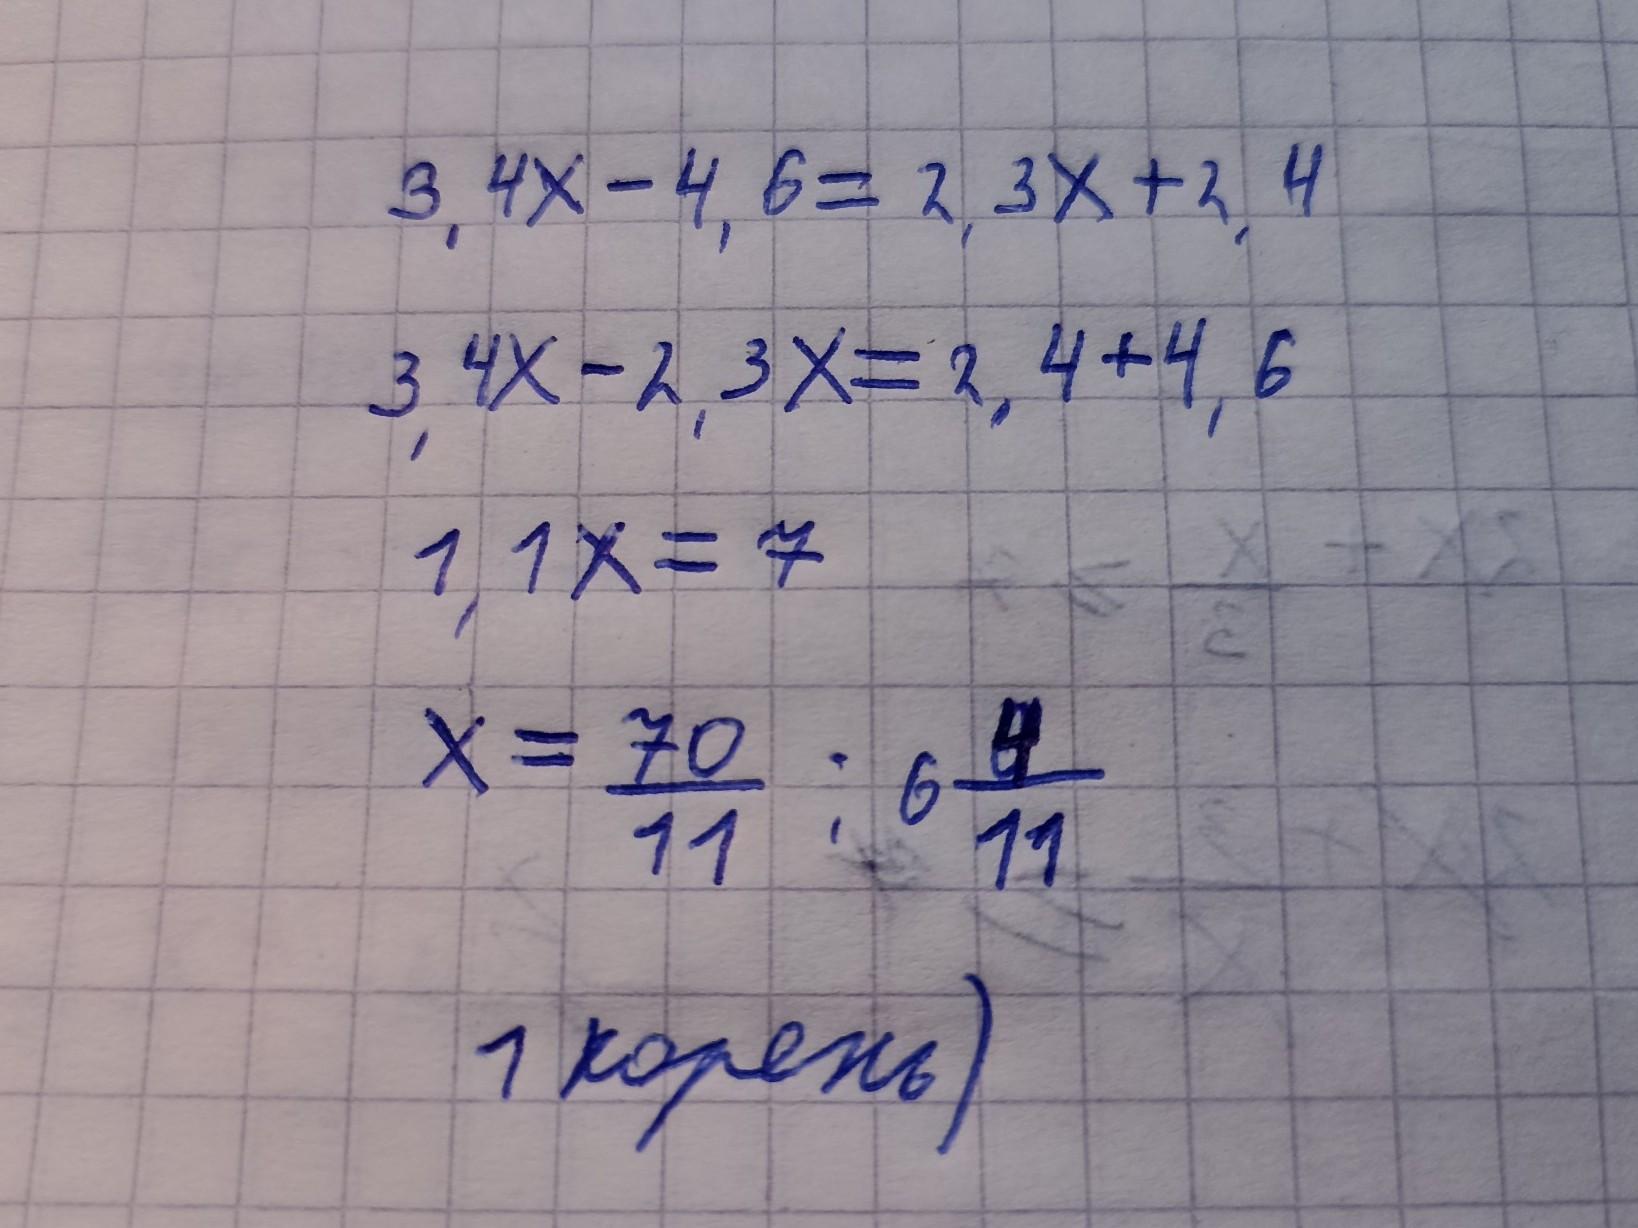 3,4x-4,6=2,3x+2,4
3,4x-2,3x=2,4+4,6
1,1x=7
x=70/11 ; 6 4/11
1 корень)